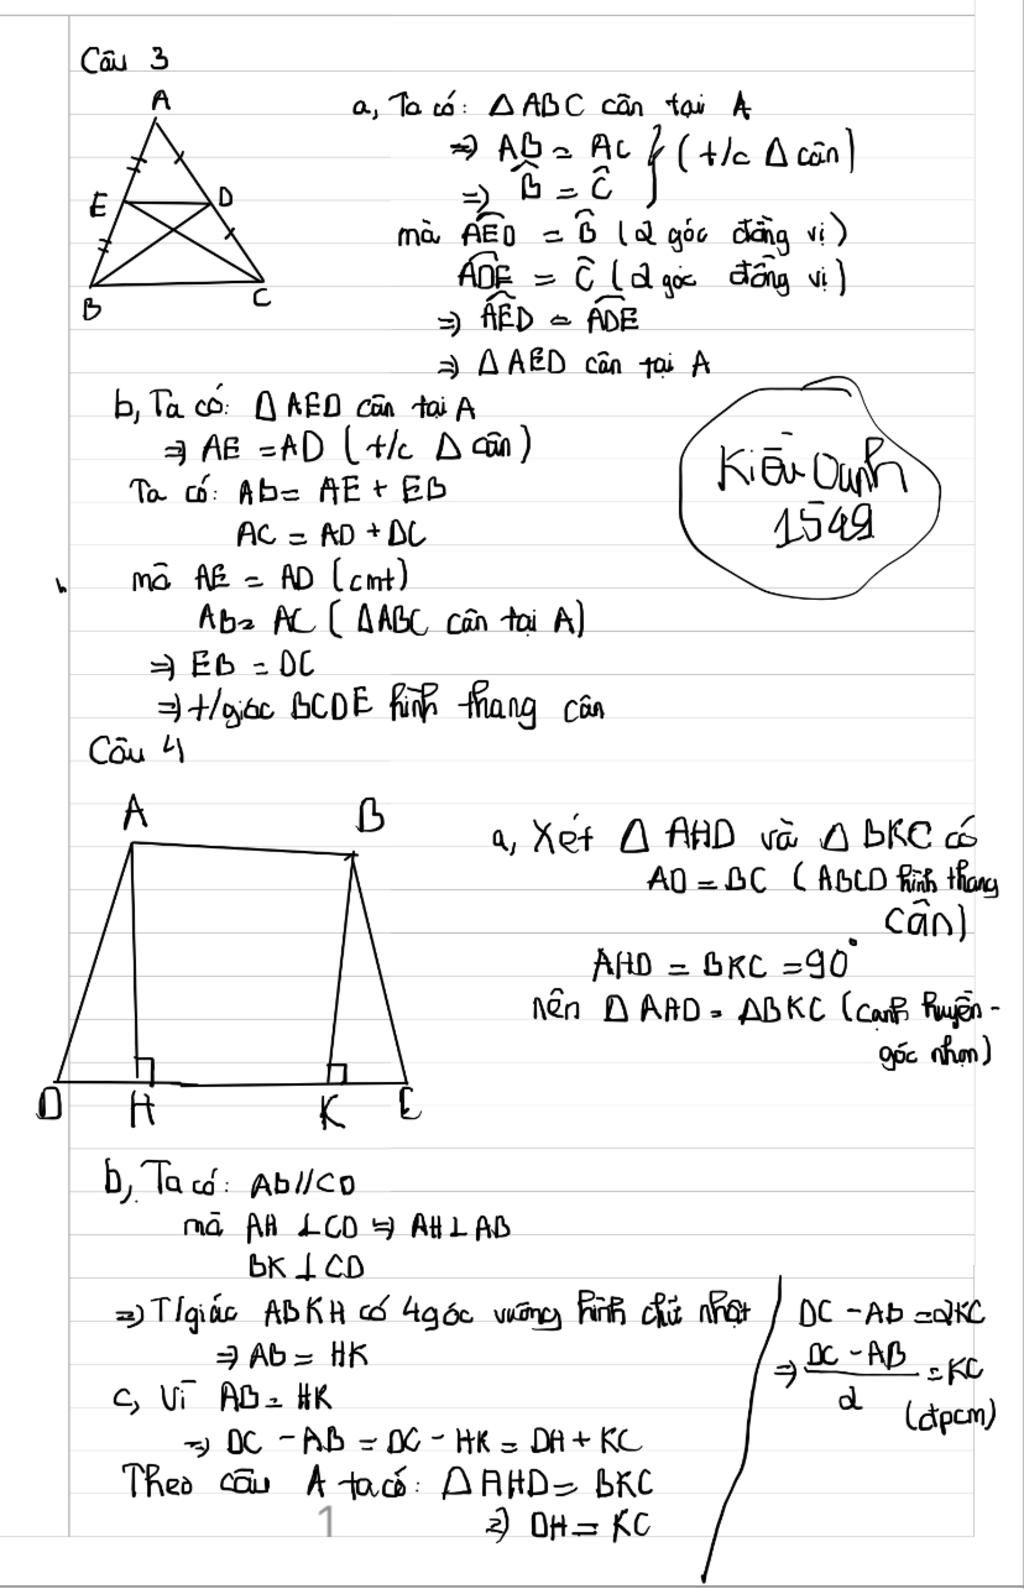 Câu 3
A
E
D
B
C
a, Ta có: Δ ABC cân tại A
⇒ AB = AC } (t/c Δ cân)
⇒ B̂ = Ĉ
mà AÊD = B̂ (2 góc đồng vị)
AD̂E = Ĉ (2 góc đồng vị)
⇒ AÊD = AD̂E
⇒ Δ AED cân tại A
b, Ta có: Δ AED cân tại A
⇒ AE = AD (t/c Δ cân)
Ta có: Ab = AE + EB
AC = AD + DC
mà AE = AD (cmt)
Ab = AC (ΔABC cân tại A)
⇒ EB = DC
⇒ t/giác BCDE hình thang cân
Kiều Oanh
1549
Câu 4
A
B
D
H
K
C
a, Xét Δ AHD và Δ BKC có
AD = BC (ABCD hình thang
cân)
AHD = BKC = 90°
nên Δ AHD = ΔBKC (cạnh huyền -
góc nhọn)
b, Ta có: Ab // CD
mà AH ⊥ CD ⇒ AH ⊥ AB
BK ⊥ CD
⇒ T/giác ABKH có 4 góc vuông hình chữ nhật
⇒ Ab = HK
c, Vì AB = HK
⇒ DC - AB = DC - HK = DH + KC
Theo câu A ta có: Δ AHD = BKC
⇒ DH = KC
1
DC - Ab = 2KC
⇒ DC - AB / 2 = KC
(đpcm)